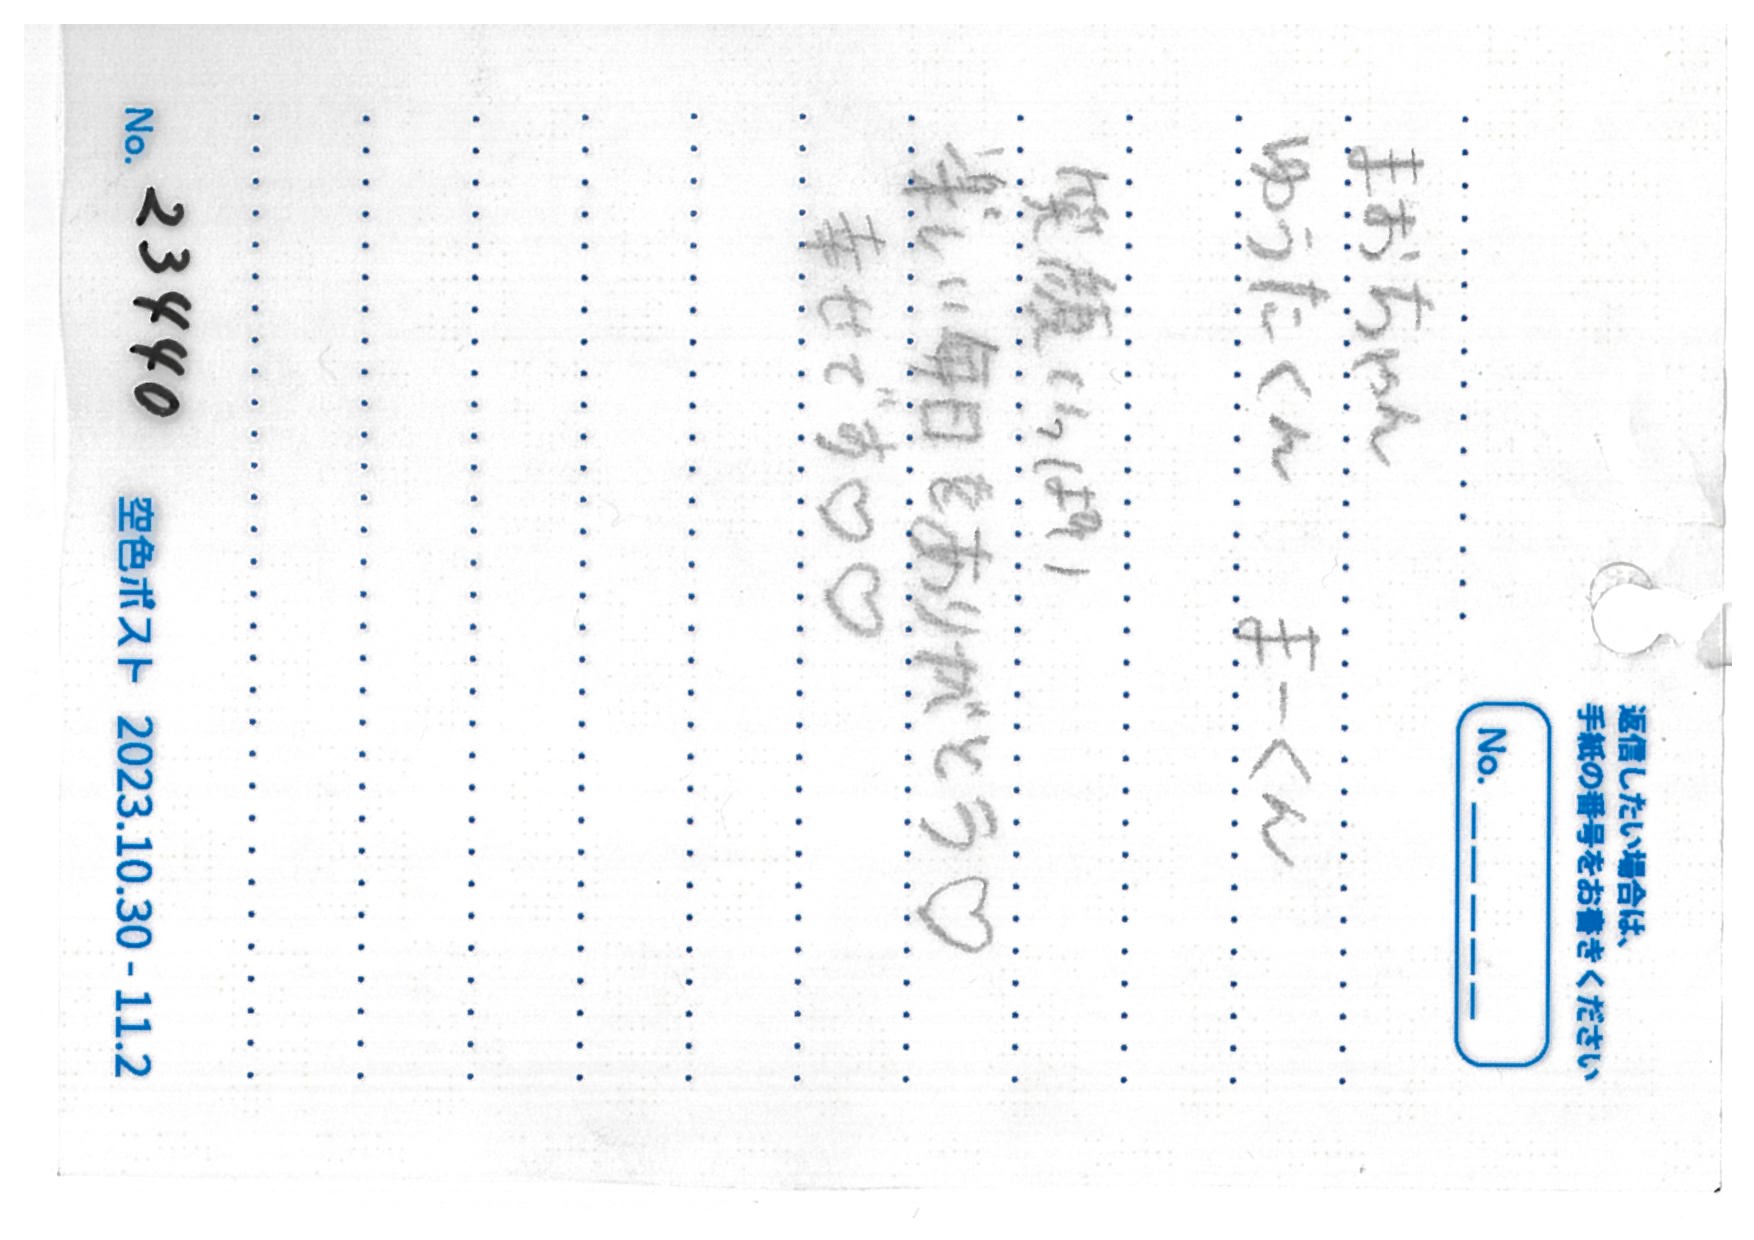 返信したい場合は、
手紙の番号をお書きください
No. _ _ _ _ _
まおちゃん
ゆうたくん　まーくん
笑顔いっぱい
楽しい毎日をありがとう♡
幸せです♡♡
No. 23440 空色ポスト 2023.10.30 - 11.2